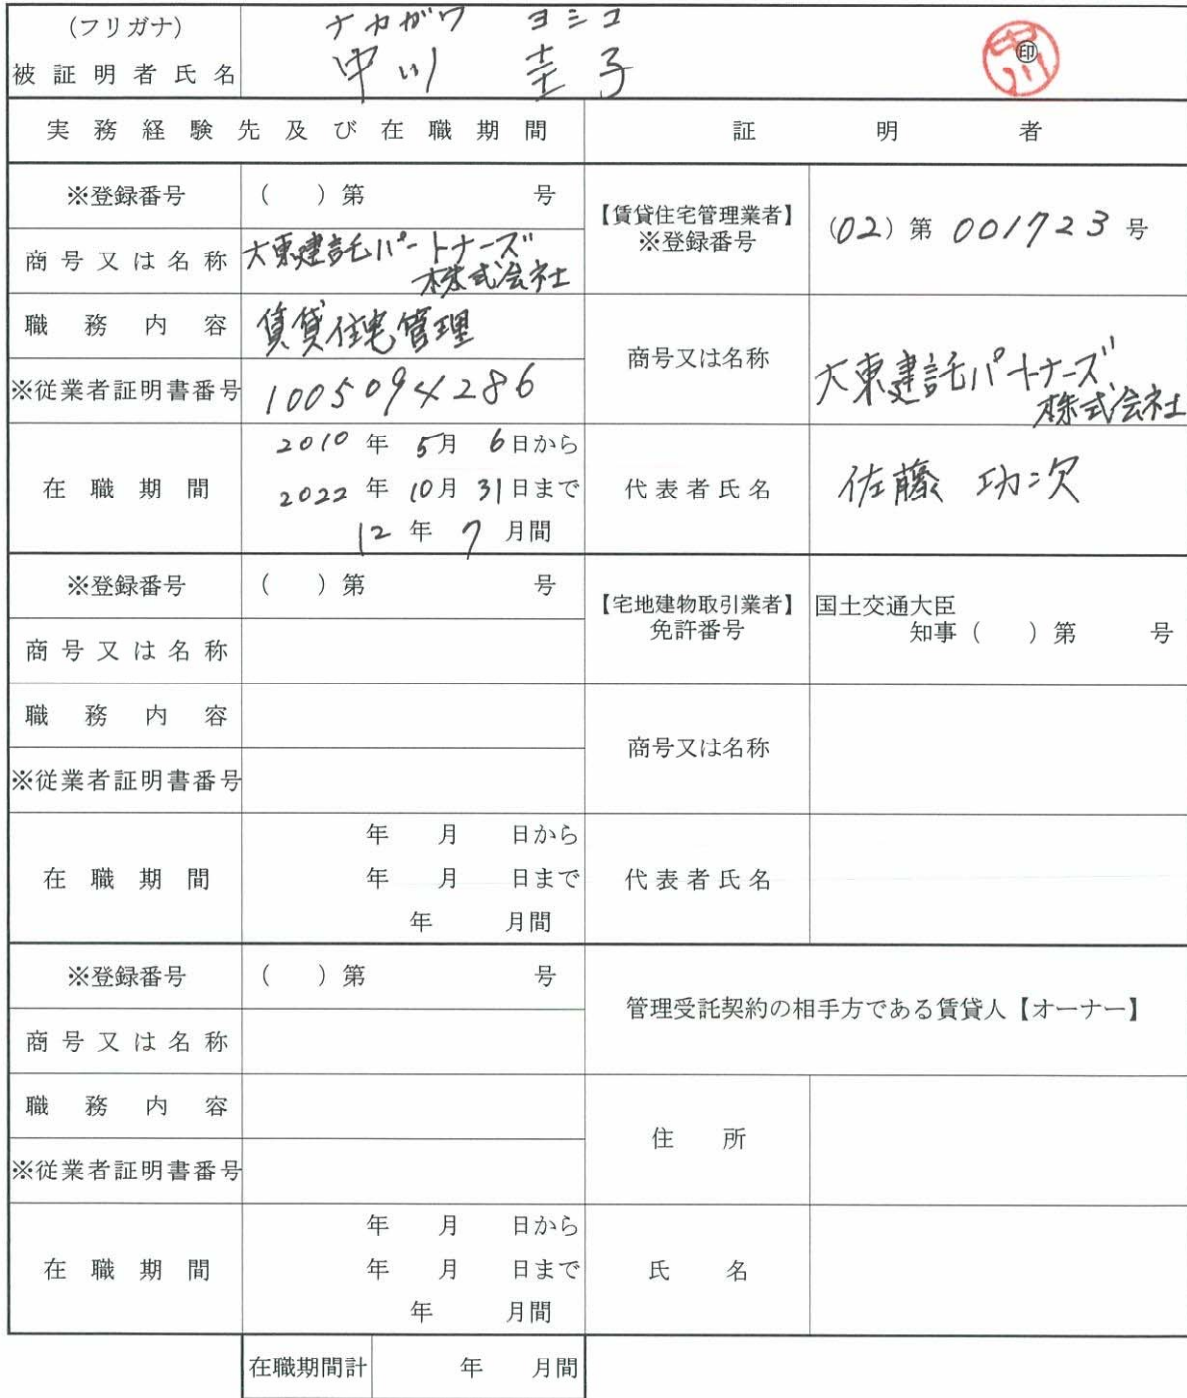 (フリガナ) ナカガワ ヨシコ
被証明者氏名 中川 圭子 ㊞ 中川
実務経験先及び在職期間 証明者
※登録番号 ( ) 第 号
商号又は名称 大東建託パートナーズ
株式会社
職務内容 賃貸住宅管理
※従業者証明書番号 1005094286
在職期間
2010年 5月 6日から
2022年 10月 31日まで
12年 7月間
【賃貸住宅管理業者】
※登録番号 (02) 第 001723 号
商号又は名称 大東建託パートナーズ
株式会社
代表者氏名 佐藤 功次
※登録番号 ( ) 第 号
商号又は名称
職務内容
※従業者証明書番号
在職期間
年 月 日から
年 月 日まで
年 月間
【宅地建物取引業者】
免許番号
国土交通大臣
知事 ( ) 第 号
商号又は名称
代表者氏名
※登録番号 ( ) 第 号
商号又は名称
職務内容
※従業者証明書番号
在職期間
年 月 日から
年 月 日まで
年 月間
管理受託契約の相手方である賃貸人【オーナー】
住所
氏名
在職期間計 年 月間